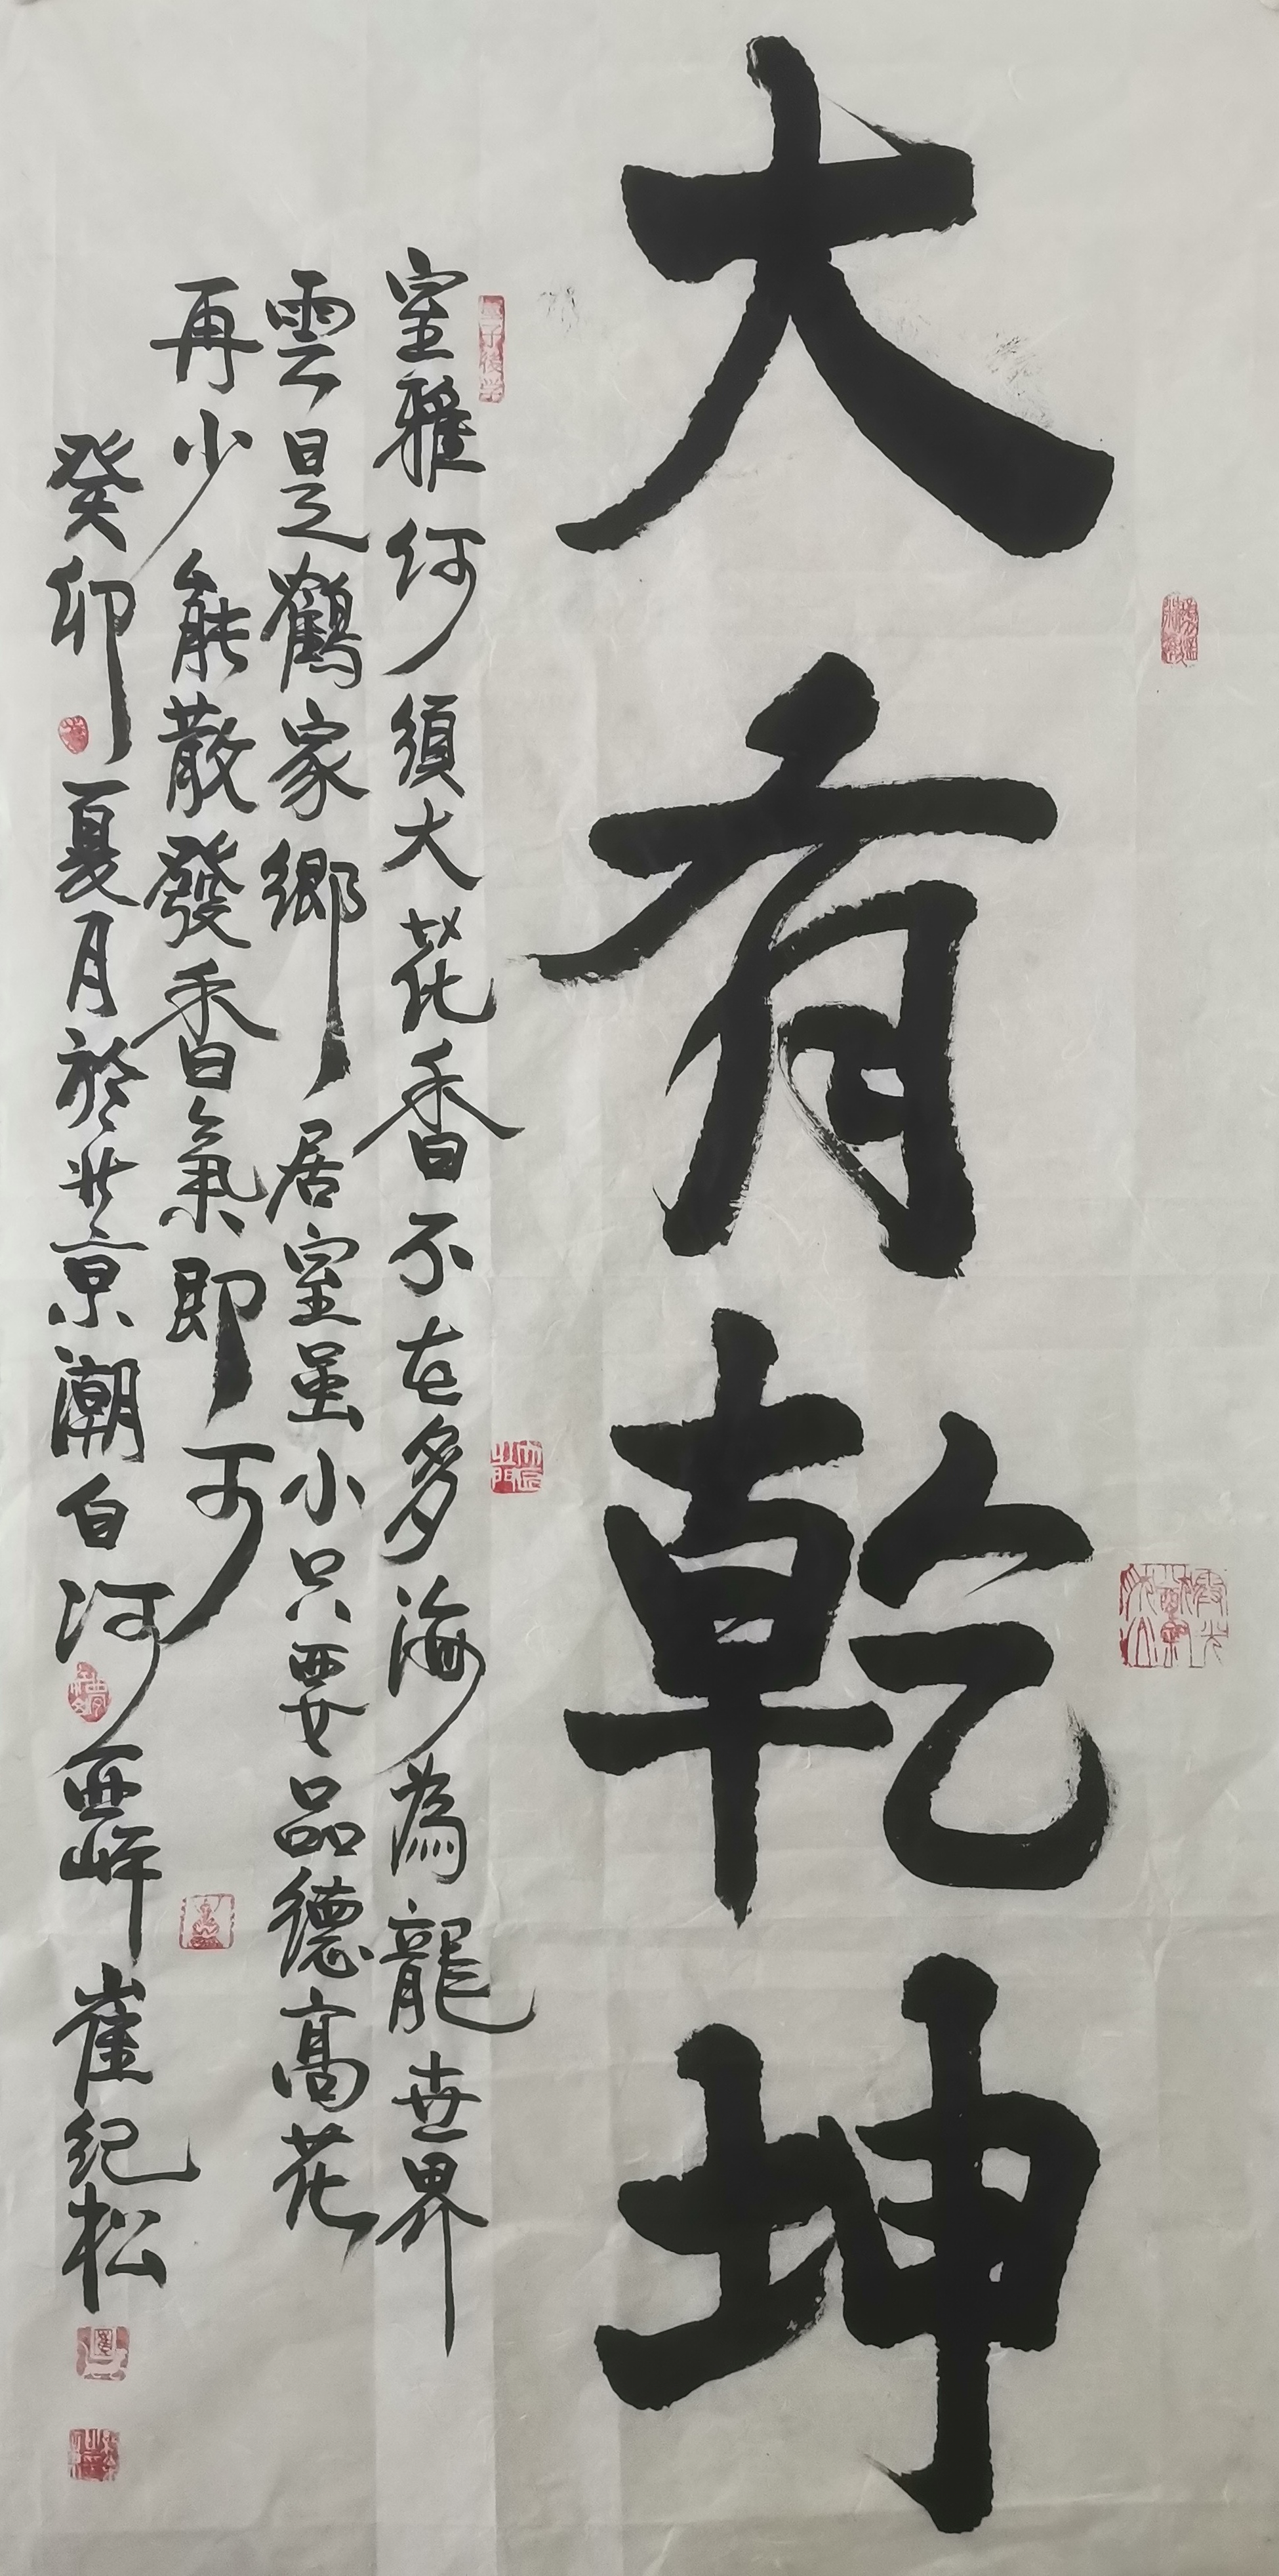 大有乾坤
室雅何須大花香不在多海為龍世界
雲是鶴家鄉居室虽小只要品德高花
再少能散發香氣即可
癸卯夏月於北京潮白河西岸崔纪松